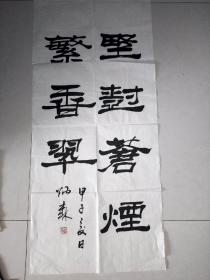 封蒼煙
繁香翠
甲子夏日
炳森